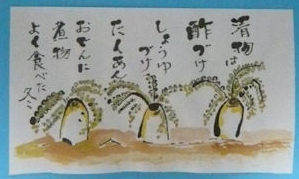 漬物は
酢づけ
しょうゆ
づけ
たくあん
おでんに
煮物
よく食べた
冬